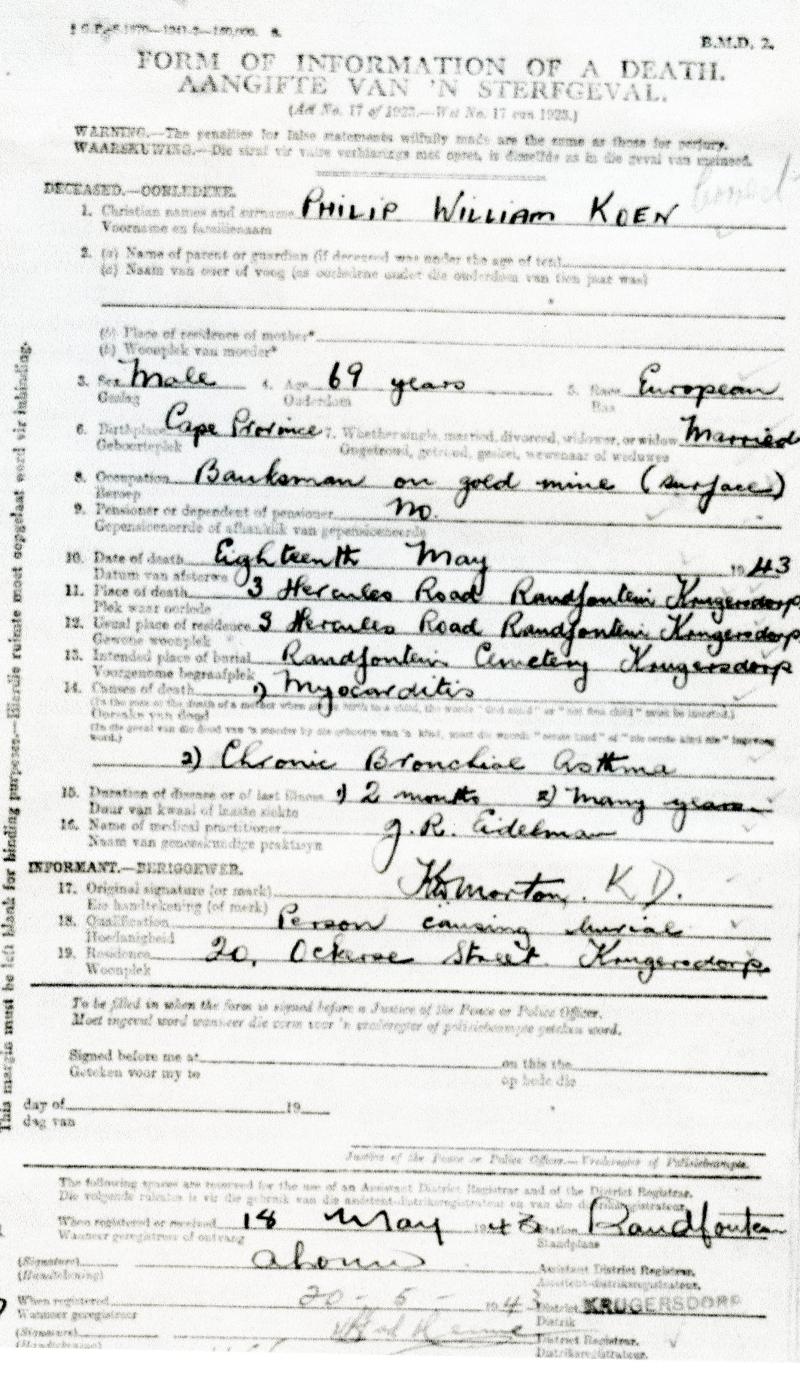 B.M.D. 2.
FORM OF INFORMATION OF A DEATH.
AANGIFTE VAN 'N STERFGEVAL.
(Act No. 17 of 1923.—Wet No. 17 van 1923.)
WARNING.—The penalties for false statements wilfully made are the same as those for perjury.
WAARSKUWING.—Die straf vir valse verklarings met opset, is dieselfde as in die geval van meineed.
DECEASED.—OORLEDENE.
1. Christian names and surname PHILIP WILLIAM KOEN
Voorname en familienaam
2. (a) Name of parent or guardian (if deceased was under the age of ten)
(a) Naam van ouer of voog (as oorledene onder die ouderdom van tien jaar was)
(b) Place of residence of mother*
(b) Woonplek van moeder*
3. Sex Male 4. Age 69 years 5. Race European
Geslag Ouderdom Ras
6. Birthplace Cape Province 7. Whether single, married, divorced, widower, or widow Married
Geboorteplek Ongetroud, getroud, geskei, wewenaar of weduwee
8. Occupation Banksman on gold mine (surface)
Beroep
9. Pensioner or dependent of pensioner No.
Gepensioneerde of afhanklik van gepensioneerde
10. Date of death Eighteenth May 1943
Datum van afsterwe
11. Place of death 3 Hercules Road Randfontein Krugersdorp
Plek waar oorlede
12. Usual place of residence 3 Hercules Road Randfontein Krugersdorp
Gewone woonplek
13. Intended place of burial Randfontein Cemetery Krugersdorp
Voorgenome begraafplek
14. Causes of death 1) Myocarditis
Oorsake van dood
2) Chronic Bronchial Asthma
15. Duration of disease or of last illness 1) 2 months 2) Many years
Duur van kwaal of laaste siekte
16. Name of medical practitioner J. R. Eidelman
Naam van geneeskundige praktisyn
INFORMANT.—BERIGGEWER.
17. Original signature (or mark) Morton. K D.
Eie handtekening (of merk)
18. Qualification Person causing burial
Hoedanigheid
19. Residence 20, Ockerse Street Krugersdorp
Woonplek
To be filled in when the form is signed before a Justice of the Peace or Police Officer.
Moet ingevul word wanneer die vorm voor 'n vrederegter of polisiebeampte geteken word.
Signed before me at on this the
Geteken voor my te op hede die
day of 19
dag van
Justice of the Peace or Police Officer.—Vrederegter of Polisiebeampte.
The following spaces are reserved for the use of an Assistant District Registrar and of the District Registrar.
Die volgende ruimtes is vir die gebruik van die assistent-distriksregistrateur en van die distriksregistrateur.
When registered or received 18 May 1943 Station Randfontein
Wanneer geregistreer of ontvang Standplaas
(Signature) Assistant District Registrar.
(Handtekening) Assistent-distriksregistrateur.
When registered 20-5-1943 District KRUGERSDORP
Wanneer geregistreer Distrik
(Signature) District Registrar.
(Handtekening) Distriksregistrateur.
This margin must be left blank for binding purposes.—Hierdie ruimte moet oopgelaat word vir inbinding.